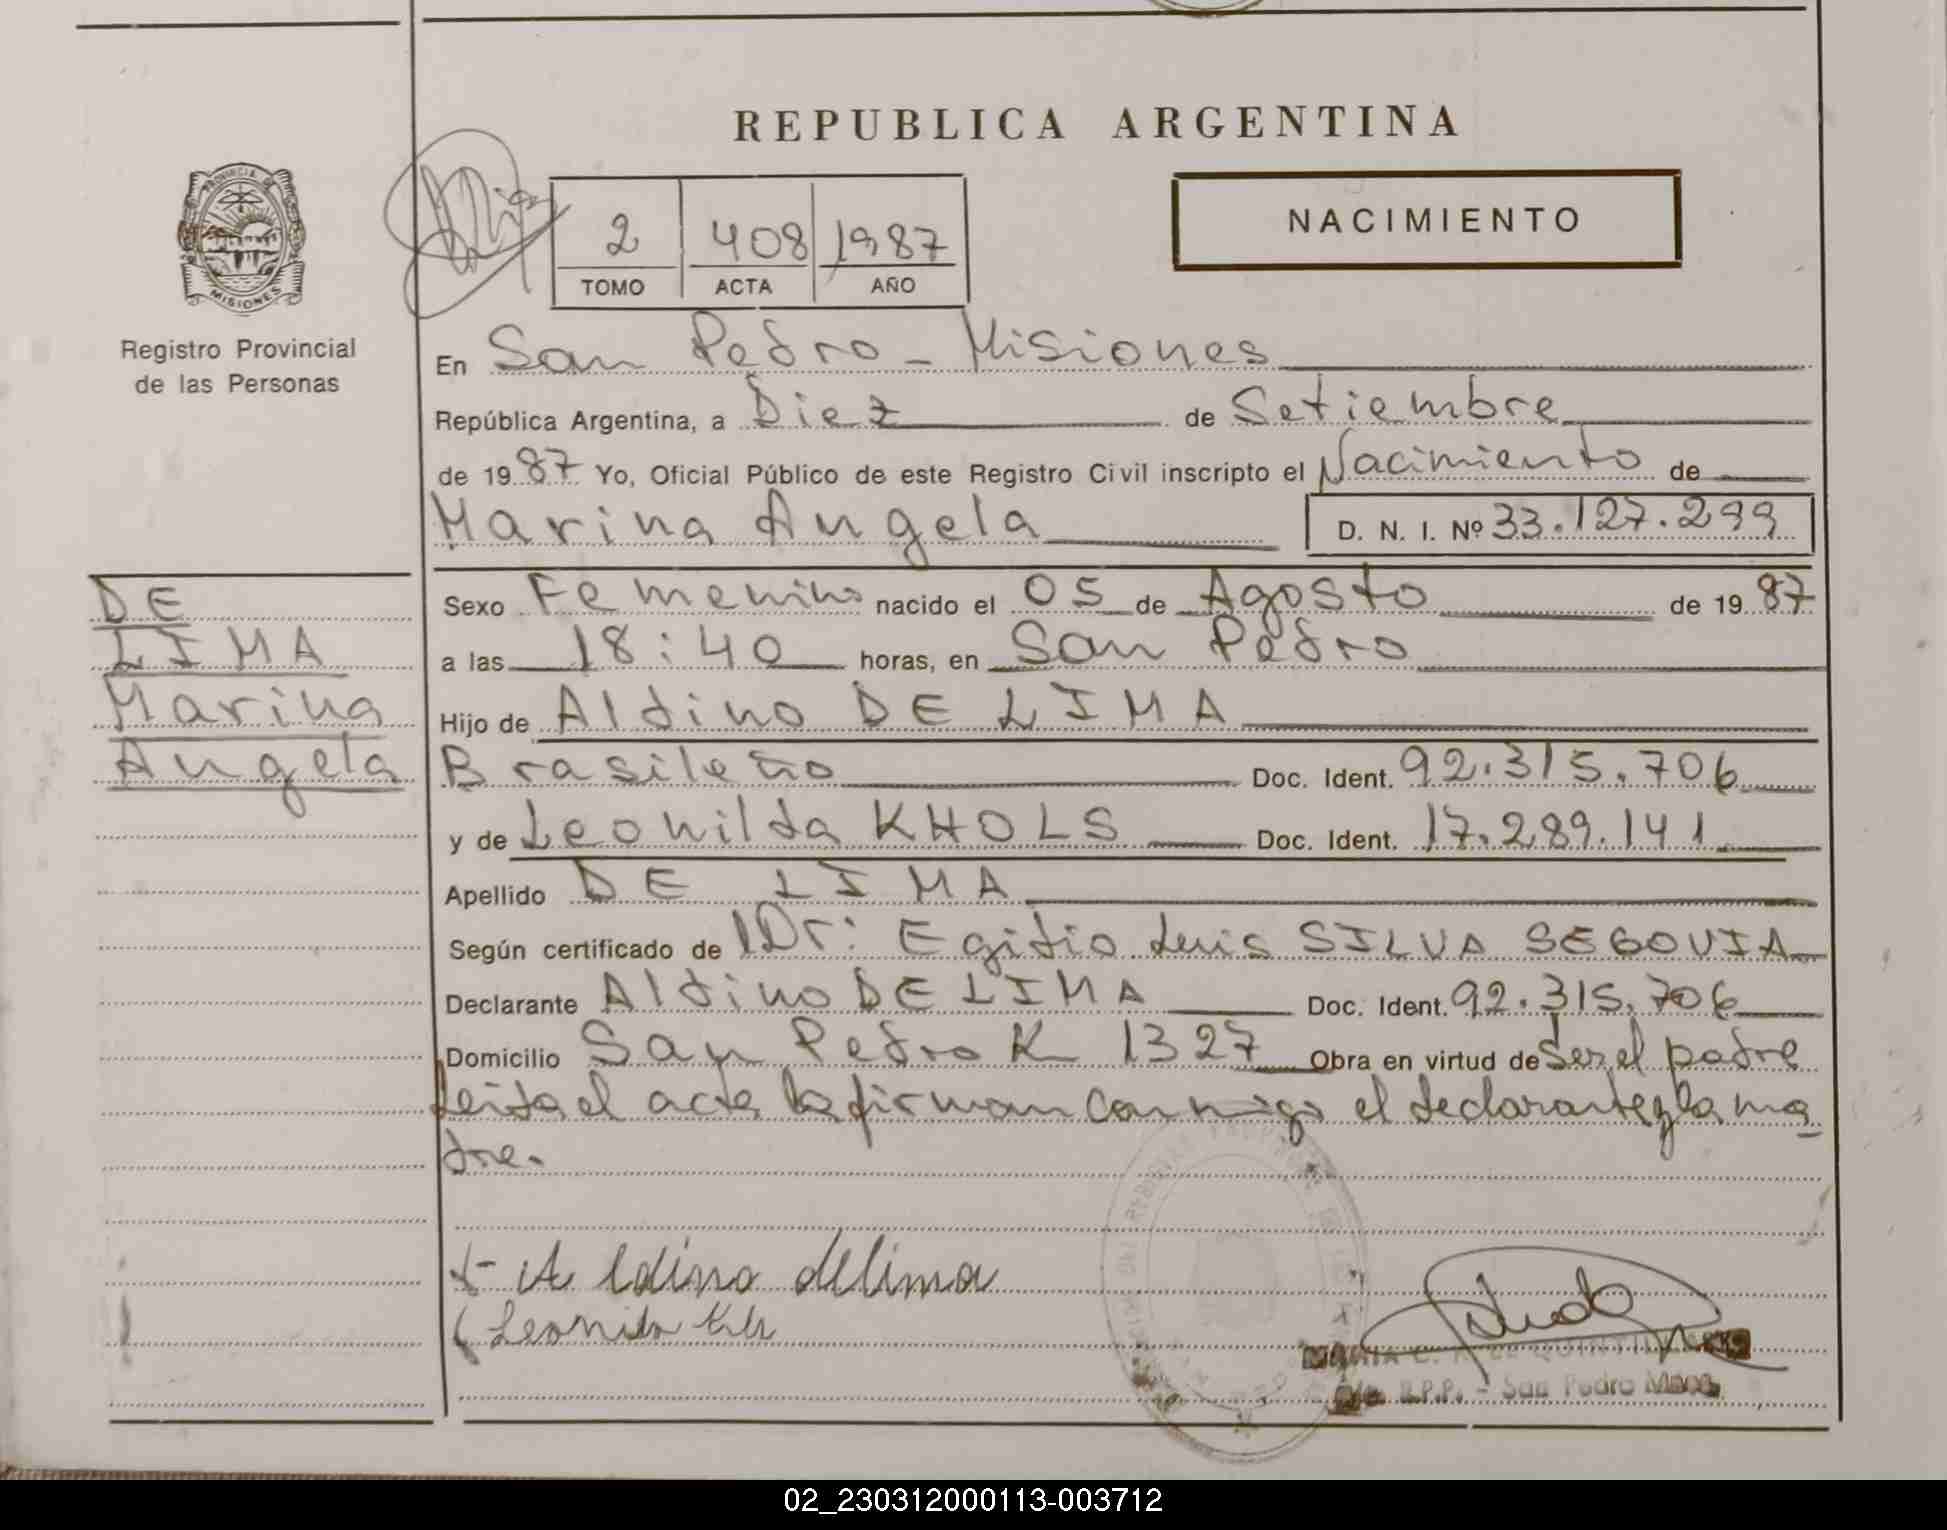 REPUBLICA ARGENTINA
PROVINCIA DE
MISIONES
Registro Provincial
de las Personas
NACIMIENTO
2 408 1987
TOMO ACTA AÑO
En San Pedro - Misiones
República Argentina, a Diez de Setiembre
de 1987 Yo, Oficial Público de este Registro Civil inscripto el Nacimiento de
Marina Angela D. N. I. Nº 33.127.299
DE
LIMA
Marina
Angela
Sexo Femenino nacido el 05 de Agosto de 1987
a las 18:40 horas, en San Pedro
Hijo de Aldino DE LIMA
Brasileño Doc. Ident. 92.315.706
y de Leonilda KHOLS Doc. Ident. 17.289.141
Apellido DE LIMA
Según certificado de Dr: Egidio Luis SILVA SEGOVIA
Declarante Aldino DE LIMA Doc. Ident. 92.315.706
Domicilio San Pedro K 1327 Obra en virtud de Ser el padre
Leida el acta la firman conmigo el declarante y la ma
dre.
Aldino delima
Leonilda
MARIA C. DE
R.P.P. - San Pedro Mnes.
02_230312000113-003712